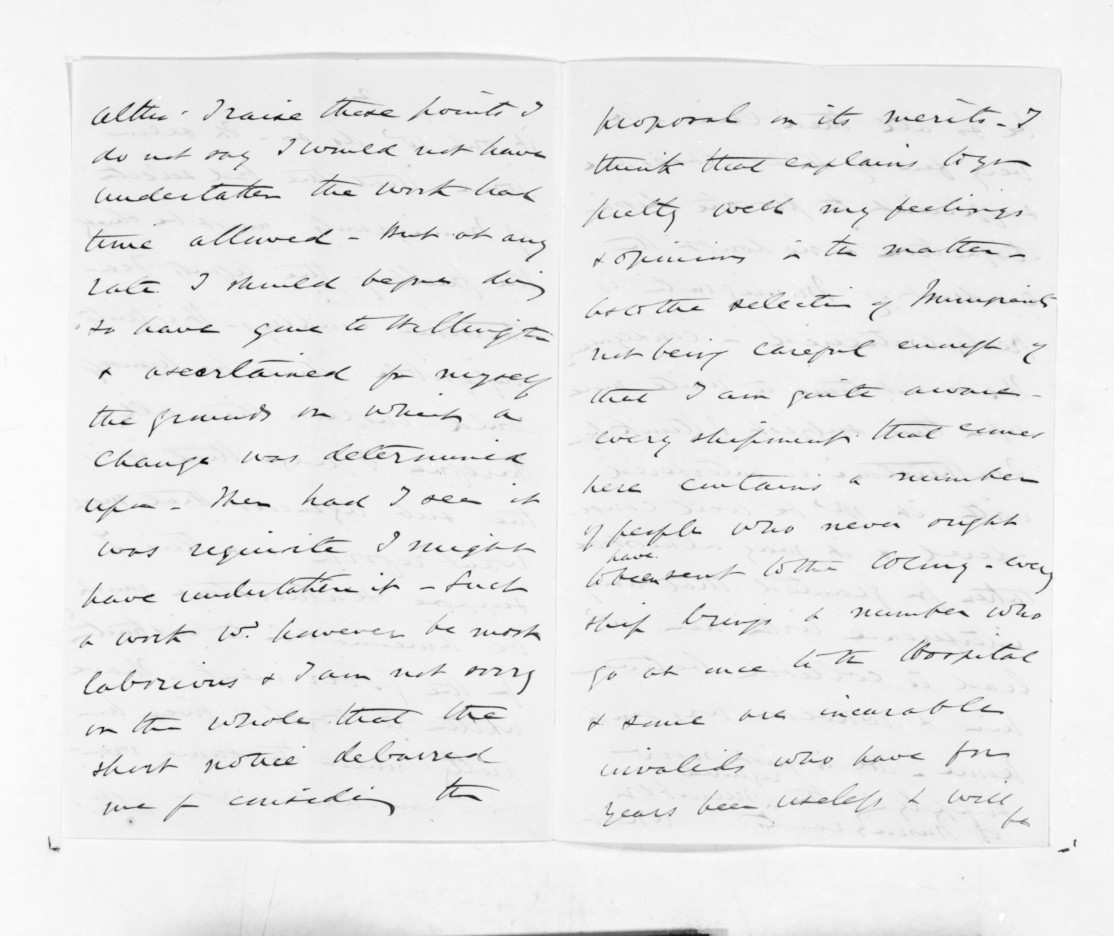 alter. I raise these points I
do not say I would not have
undertaken the work had
time allowed - But at any
rate I should before doing
so have gone to Wellington
& ascertained for myself
the grounds on which a
change was determined
upon - Then had I seen it
was requisite I might
have undertaken it - Such
a work wd. however be most
laborious & I am not sorry
on the whole that the
short notice debarred
me fr considering the
proposal on its merits - I
think that explains to you
pretty well my feelings
& opinions in the matter -
As to the selection of Immigrants
not being careful enough of
that I am quite aware -
every shipment that comes
here contains a number
of people who never ought
to have been sent to the Colony - every
ship brings a number who
go at once to the Hospital
& some are incurable
invalids who have for
years been useless & will be